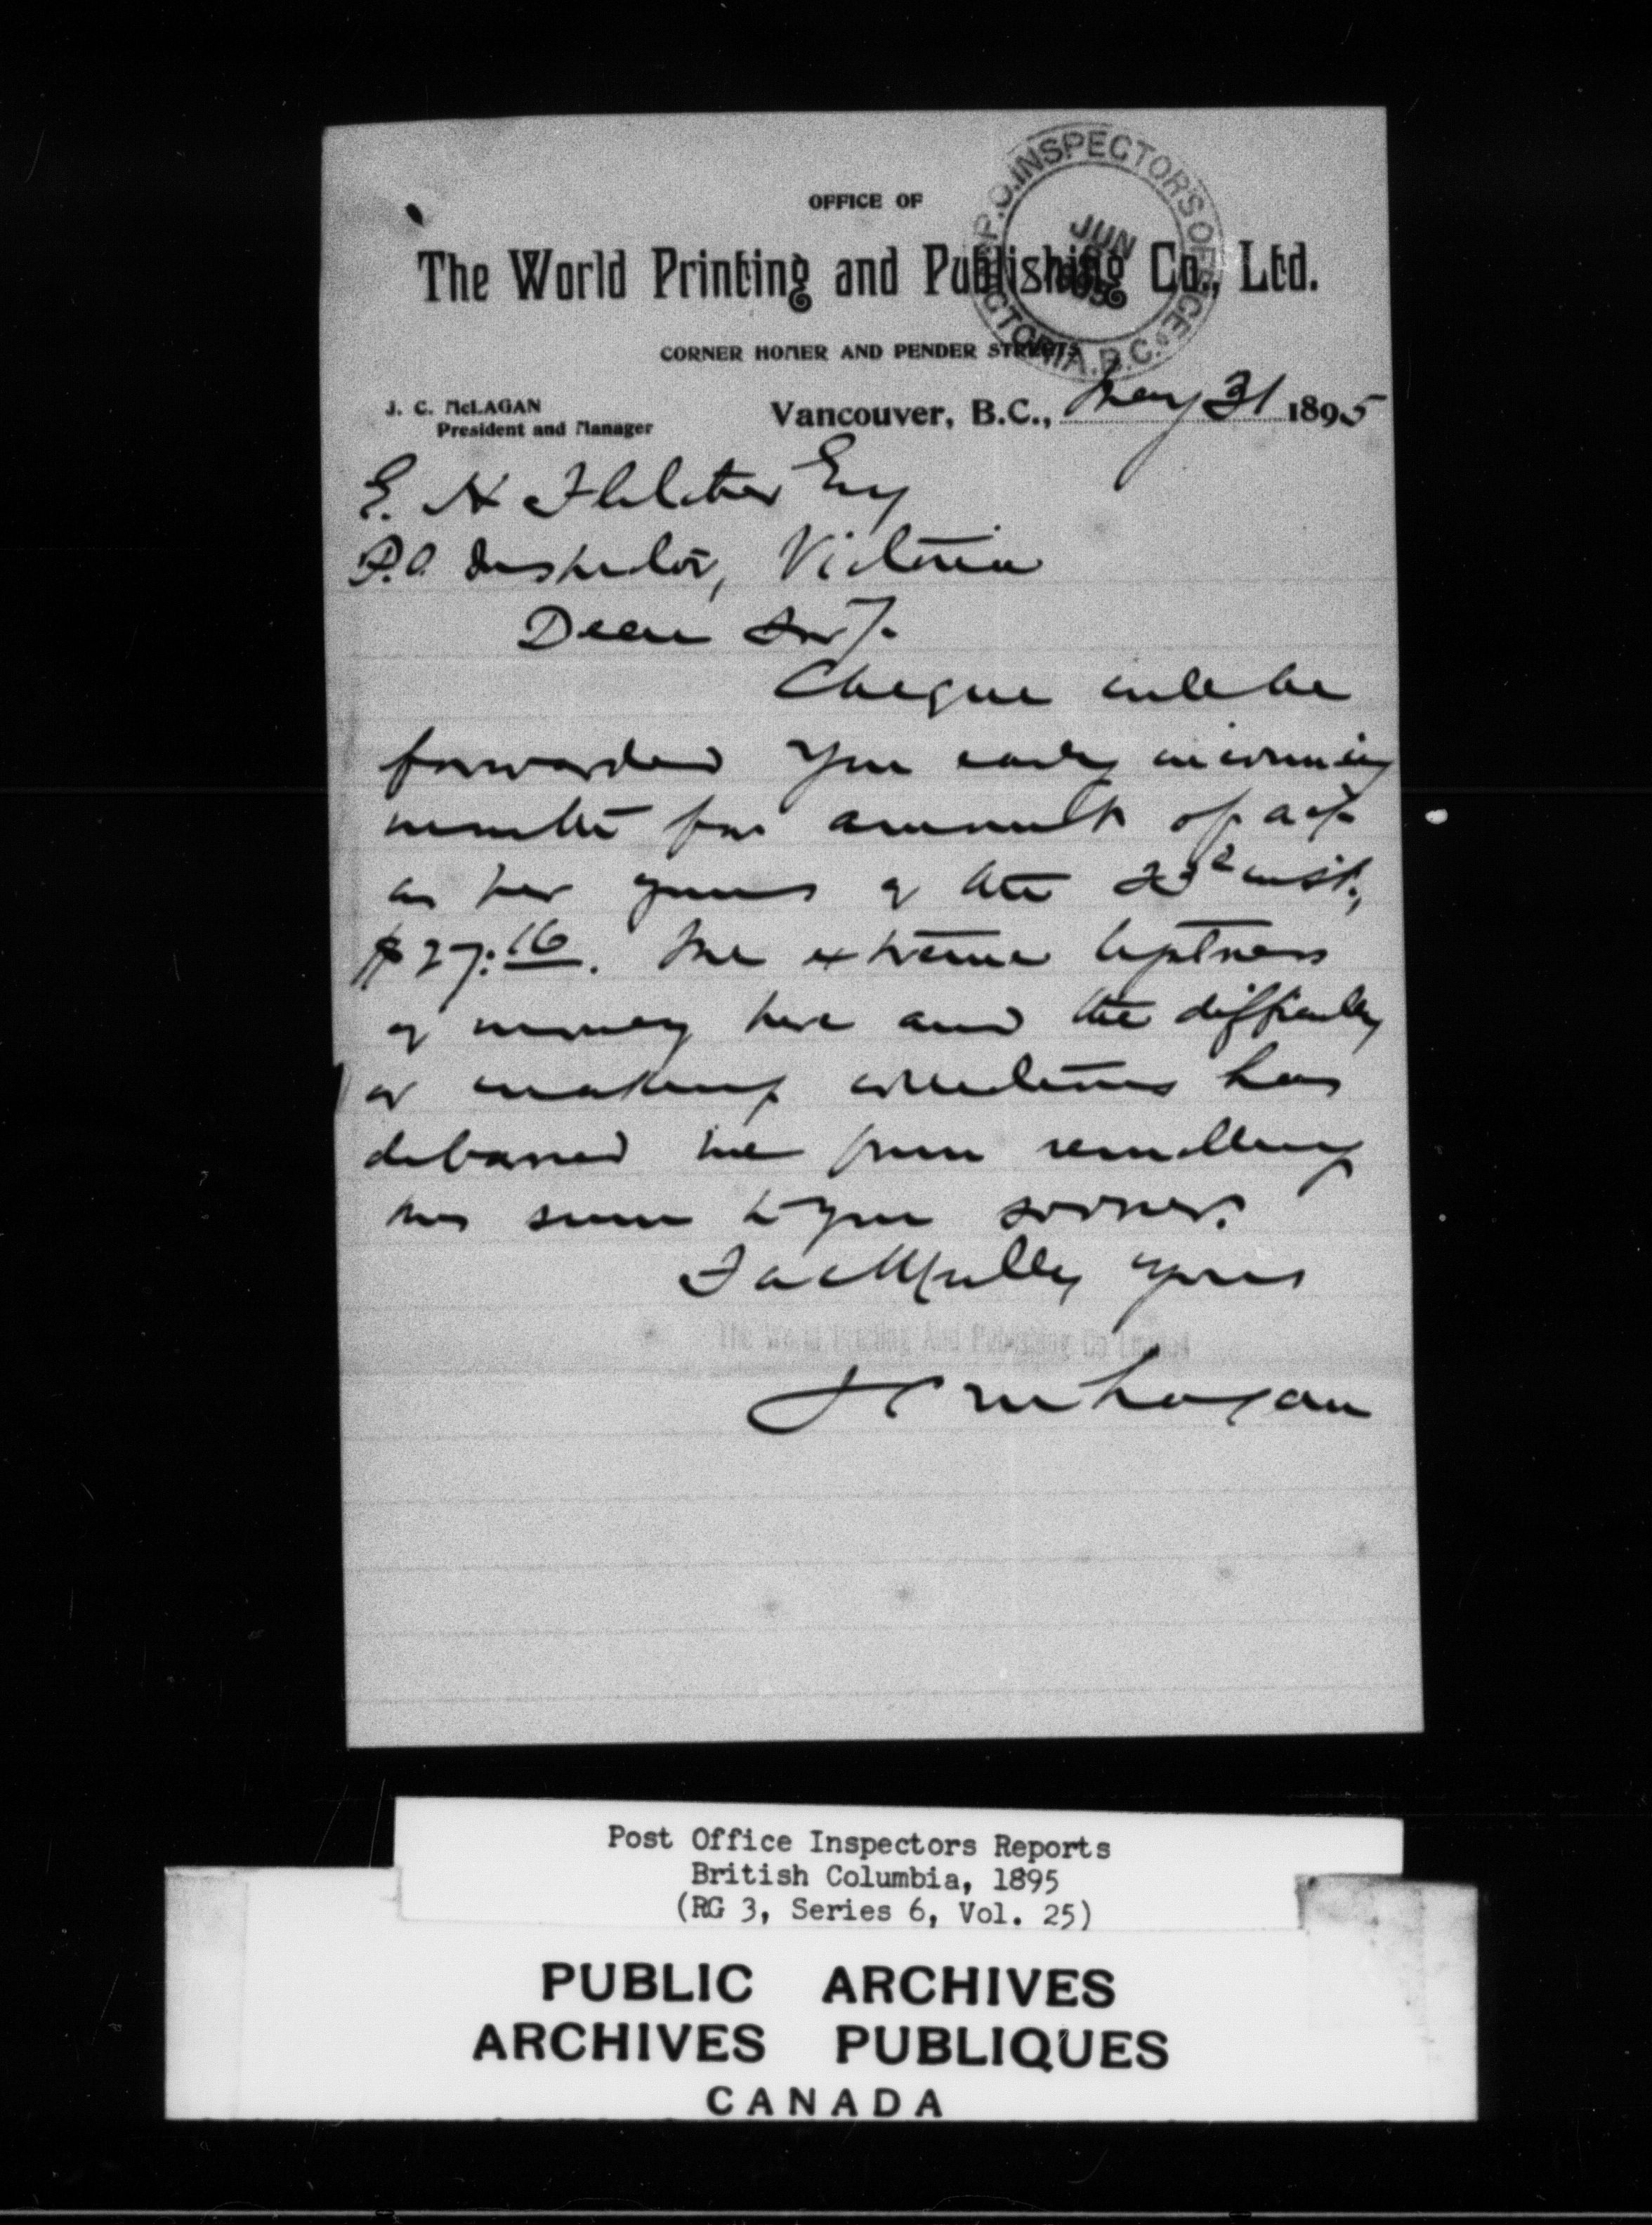 P.O. INSPECTOR'S OFFICE
JUN
95
VICTORIA. B.C.
OFFICE OF
The World Printing and Publishing Co., Ltd.
CORNER HOMER AND PENDER STREETS
J. C. McLAGAN
President and Manager
Vancouver, B.C., May 31 1895
E. H Fletcher Esq
P.O. Inspector, Victoria
Dear Sir/-
Cheque will be
forwarded you early in coming
month for amount of a/c
as per yours of the 23d inst.,
$27:16. The extreme tightness
of money here and the difficulty
of making collections has
debarred me from remitting
this sum to you sooner.
Faithfully yours
The World Printing And Publishing Co Limited
J C McLagan
Post Office Inspectors Reports
British Columbia, 1895
(RG 3, Series 6, Vol. 25)
PUBLIC ARCHIVES
ARCHIVES PUBLIQUES
CANADA